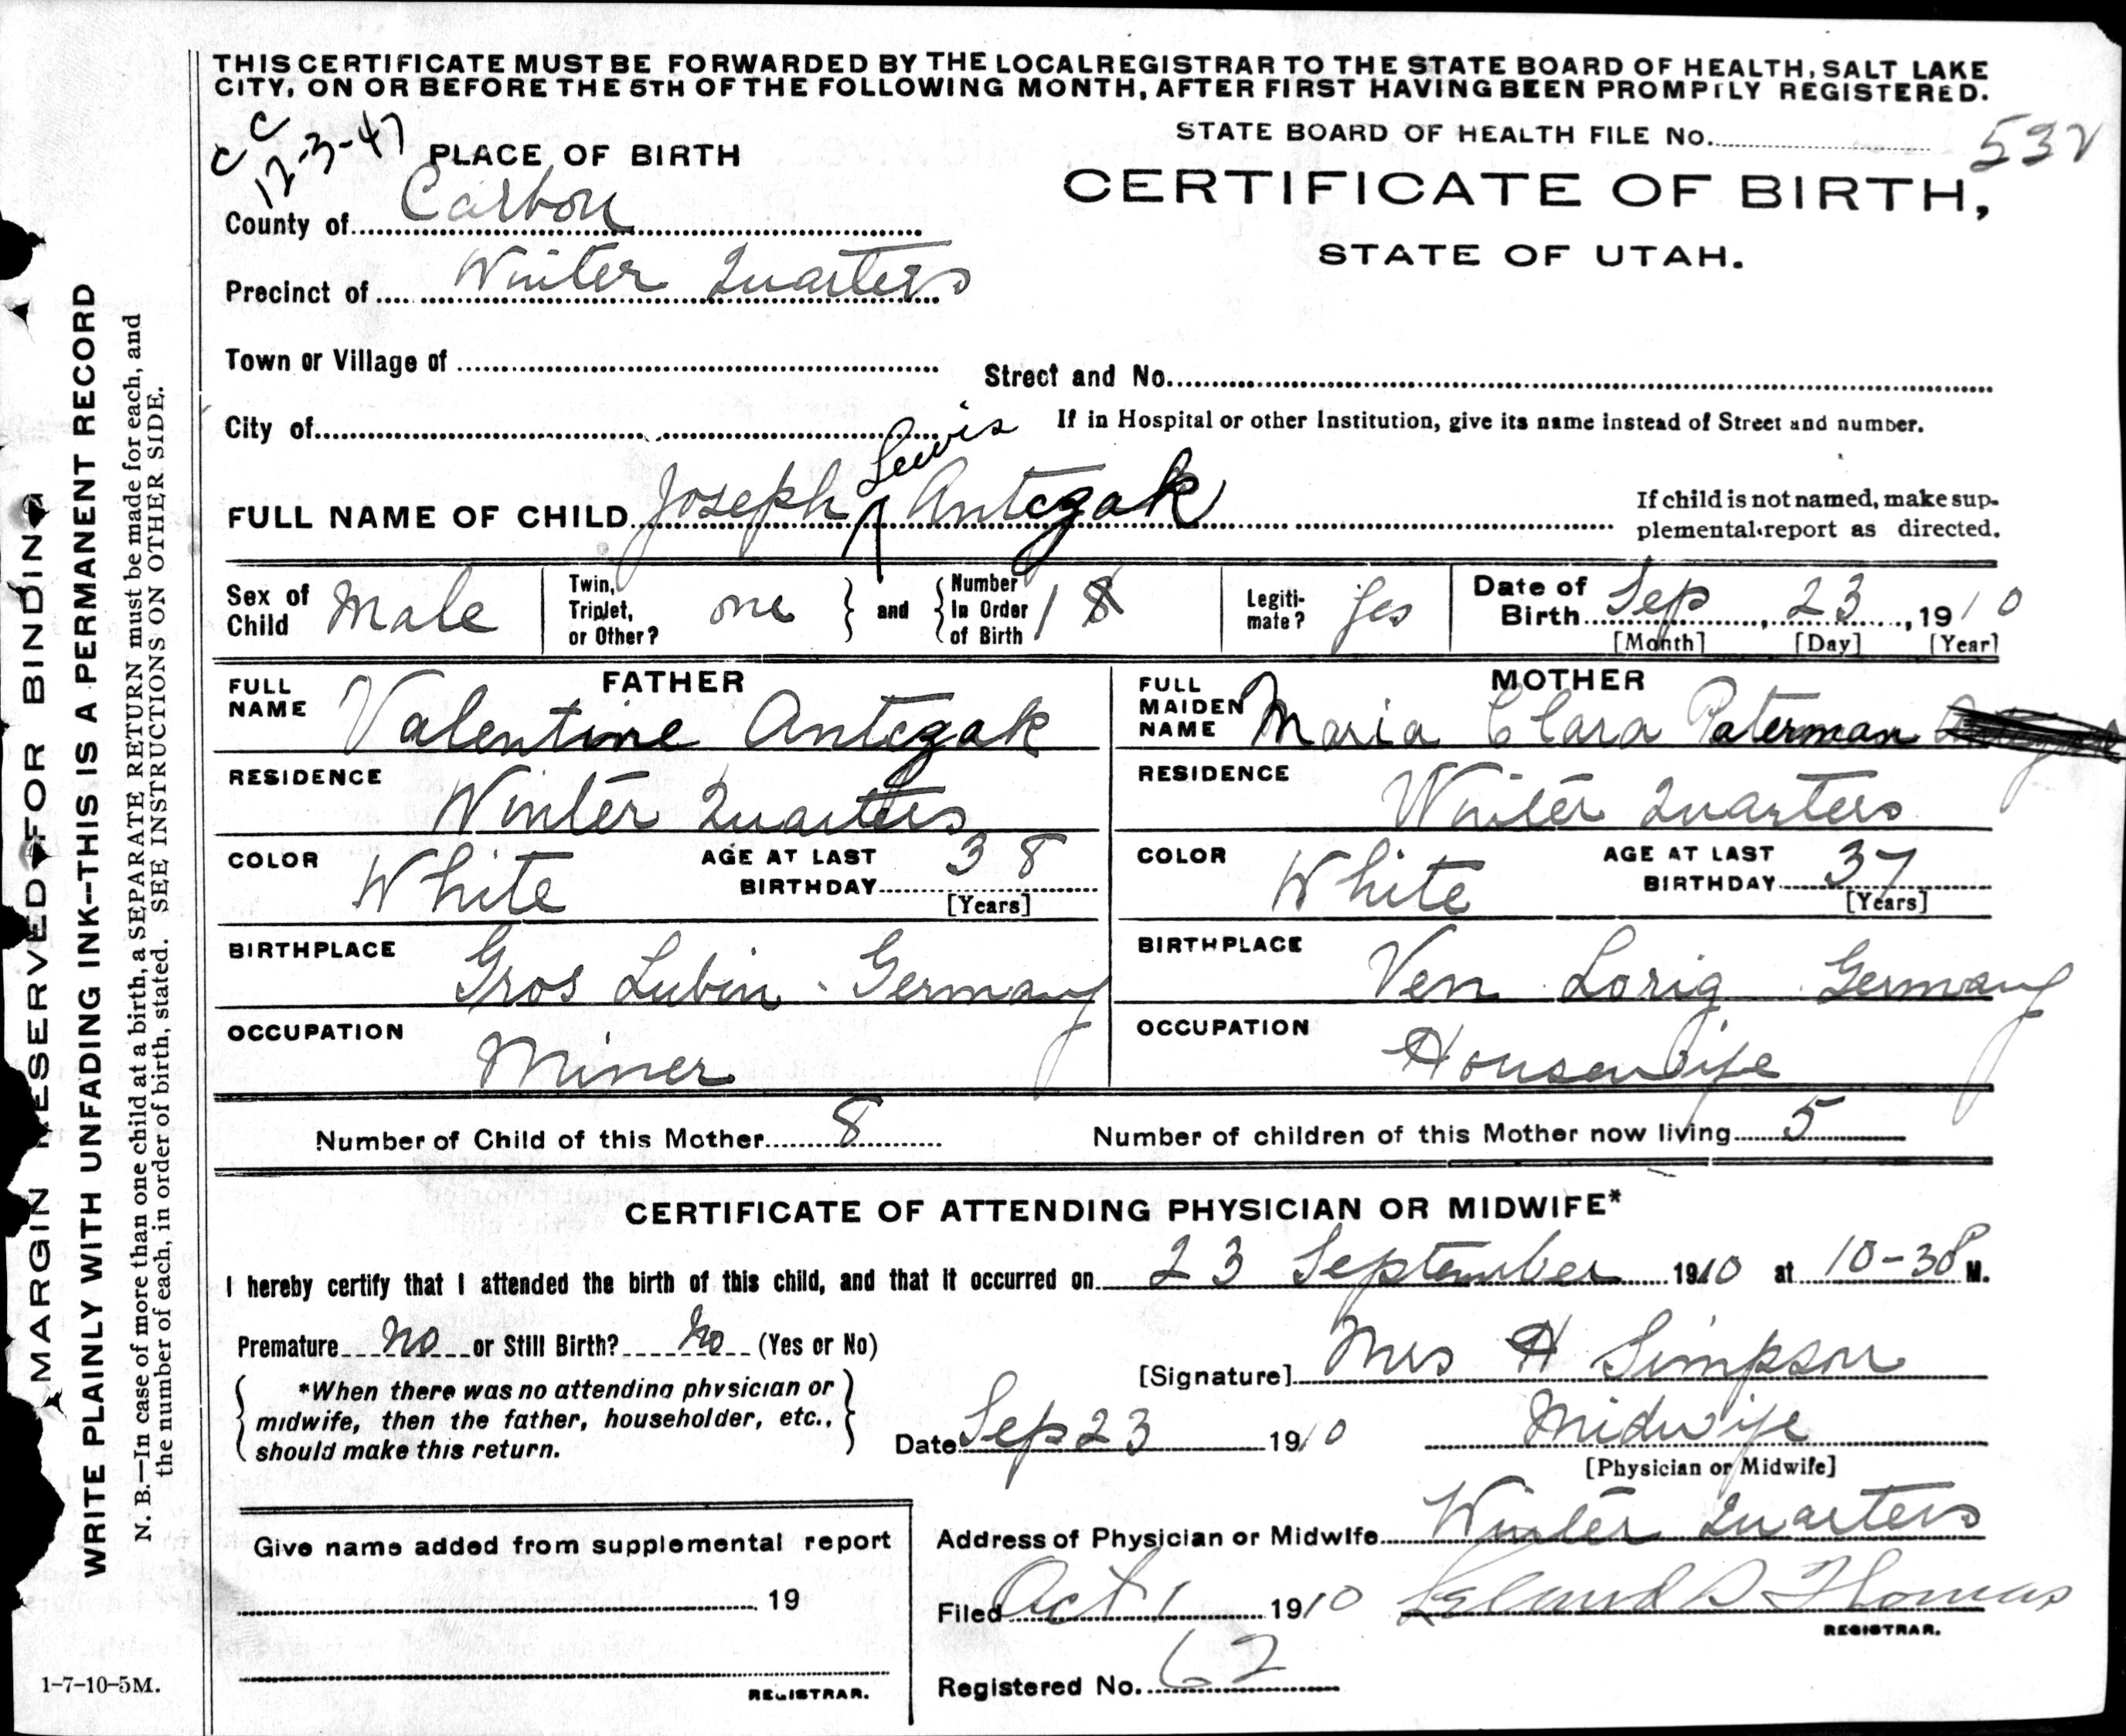 THIS CERTIFICATE MUST BE FORWARDED BY THE LOCAL REGISTRAR TO THE STATE BOARD OF HEALTH, SALT LAKE
CITY, ON OR BEFORE THE 5TH OF THE FOLLOWING MONTH, AFTER FIRST HAVING BEEN PROMPTLY REGISTERED.
STATE BOARD OF HEALTH FILE No. 532
C C
12-3-47
PLACE OF BIRTH
CERTIFICATE OF BIRTH,
STATE OF UTAH.
County of Carbon
Precinct of Winter Quarters
Town or Village of
Street and No.
City of
If in Hospital or other Institution, give its name instead of Street and number.
Lewis
FULL NAME OF CHILD Joseph Antczak
If child is not named, make sup-
plemental report as directed.
Sex of Child Male
Twin, Triplet, or Other? one and Number In Order of Birth 1 8
Legiti-mate? yes
Date of Birth Sep, 23, 1910
[Month] [Day] [Year]
FATHER
FULL NAME Valentine Antczak
RESIDENCE Winter Quarters
COLOR White AGE AT LAST BIRTHDAY 38
[Years]
BIRTHPLACE Gros Lubin - Germany
OCCUPATION Miner
MOTHER
FULL MAIDEN NAME Maria Clara Paterman
RESIDENCE Winter Quarters
COLOR White AGE AT LAST BIRTHDAY 37
[Years]
BIRTHPLACE Ven Lorig Germany
OCCUPATION Housewife
Number of Child of this Mother 8 Number of children of this Mother now living 5
CERTIFICATE OF ATTENDING PHYSICIAN OR MIDWIFE*
I hereby certify that I attended the birth of this child, and that it occurred on 23 September 1910 at 10-30 P M.
Premature No or Still Birth? No (Yes or No)
*When there was no attending physician or
midwife, then the father, householder, etc.,
should make this return.
[Signature] Mrs H Simpson
Date Sep 23 1910 Midwife
[Physician or Midwife]
Give name added from supplemental report
19
REGISTRAR.
Address of Physician or Midwife Winter Quarters
Filed Oct 1 1910 Leland D Thomas
REGISTRAR.
Registered No. 62
1-7-10-5M.
MARGIN RESERVED FOR BINDING
WRITE PLAINLY WITH UNFADING INK—THIS IS A PERMANENT RECORD
N. B.—In case of more than one child at a birth, a SEPARATE RETURN must be made for each, and
the number of each, in order of birth, stated. SEE INSTRUCTIONS ON OTHER SIDE.